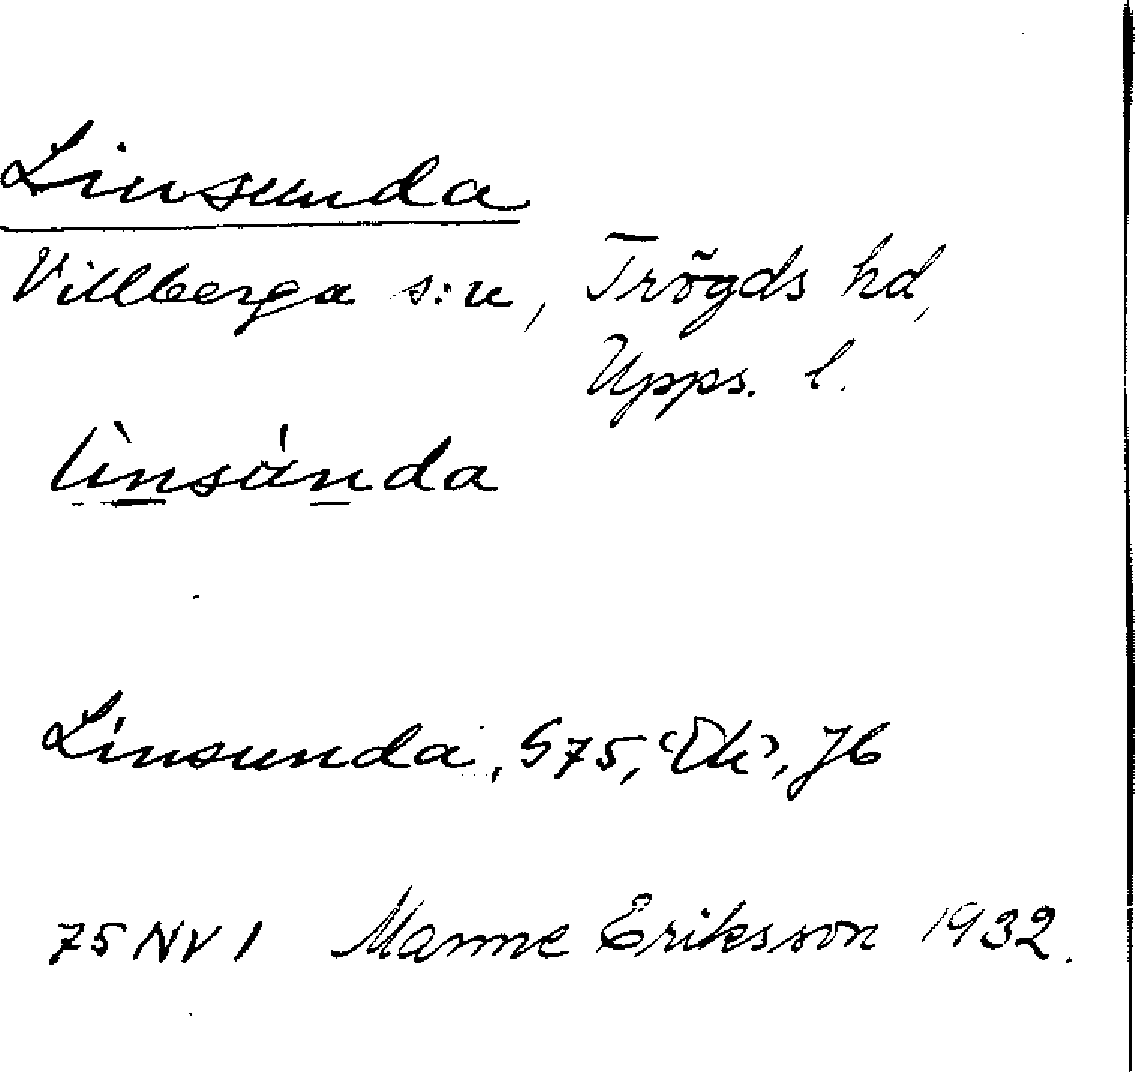 Linsunda
Villberga s:n, Trögds hd,
Upps. l.
lìnsánda
Linsunda, S75, Ek, Jb
75 NV 1 Manne Eriksson 1932.